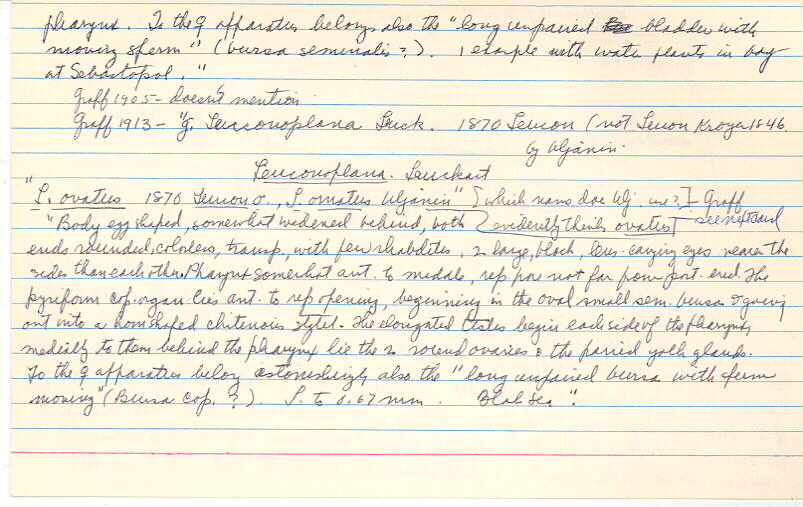 pharynx. To the ♀ apparatus belongs also the "long unpaired bladder with
moving sperm" (bursa seminalis?). 1 example with water plants in bay
at Sebastopol."
Graff 1905 - doesn't mention
Graff 1913 - "g. Leuconoplana Luck. 1870 Leucon (not Leucon Kroyer 1846.
by Uljanin.
Leuconoplana. Leuckart
"L. ovatus 1870 Leucon o., L. ornatus Uljanin" [which name doe Ulj. use?] Graff
"Body egg shaped, somewhat widened behind, both evidently thinks ovatus] see next card
ends rounded, colorless, transp., with few rhabdites, 2 large, black, lens-carrying eyes nearer the
sides than each other. Pharynx somewhat ant. to middle, rep. pore not far from post. end. The
pyriform cop. organ lies ant. to rep opening, beginning in the oval small sem. bursa & going
out into a horn shaped chitinous stylet. The elongated testes begin each side of the pharynx,
medially to them behind the pharynx lie the 2 round ovaries & the paired yolk glands.
To the ♀ apparatus belong astonishingly also the "long unpaired bursa with sperm
moving" (Bursa cop. ?). L. to 0.67 mm. Black Sea".